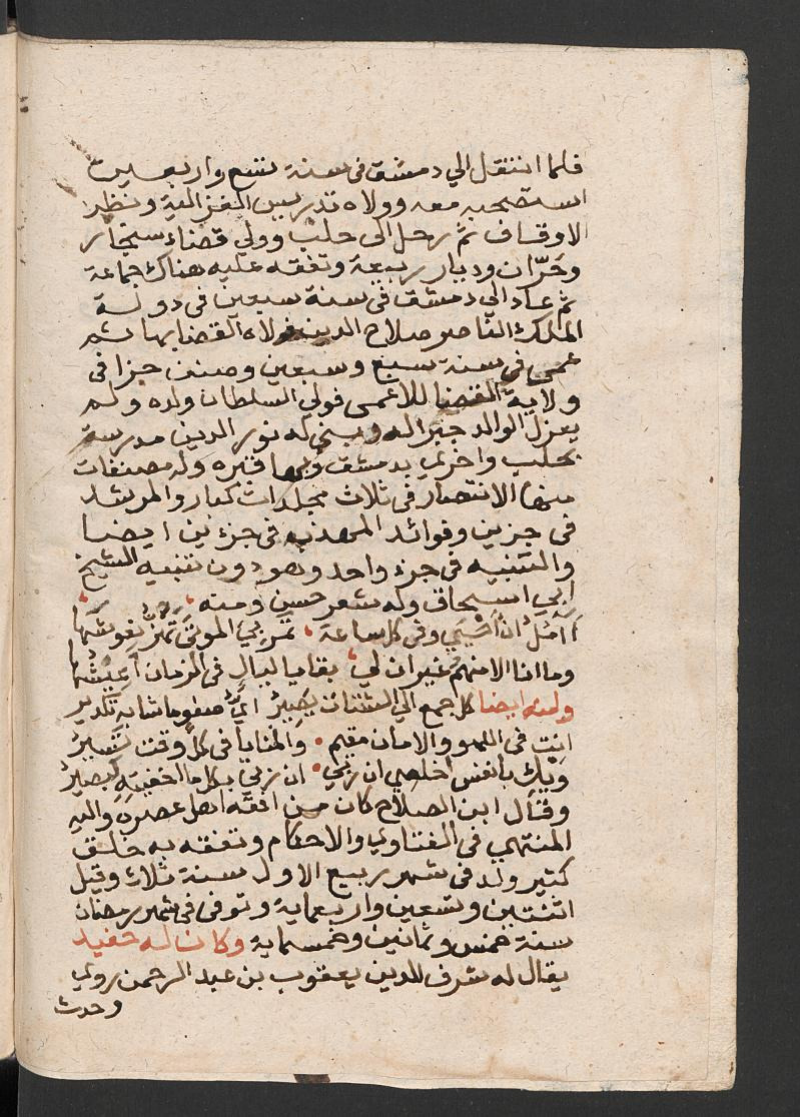 فلما انتقل الي دمشق في سنة تسع واربعين
استصحبه معه وولاه تدريس الغزالية ونظر
الاوقاف ثم رحل الى حلب وولي قضاء سنجار
وحرّان وديار ربيعة وتفقه عليه هناك جماعة
ثم عاد الي دمشق في سنة سبعين في دولة
الملك الناصر صلاح الدين فولاه القضا بها ثم
عمى في سنة سبع وسبعين وصنف جزا في
ولاية القضا للاعمى فولي السلطان ولده ولم
يعزل الوالد جبرا له وبني له نور الدين مدرسة
بحلب واخري بدمشق وبها قبره وله مصنفات
منها الانتصار في ثلاث مجلدات كبار والمرشد
في جزين وفوائد المهذب في جزءين ايضا
والتنبيه في جزء واحد وهو دون تنبيه الشيخ
ابي اسحاق وله شعر حسن ومنه
أأمل ان أحيي وفي كل ساعة ، تمر بي الموتى تهزّ نعوشها
وما انا الا منهم غير ان لي ، بقايا ليال في الزمان أعيشها
وله ايضا كل جمع الي الشتات يصير اي صفو ما شابه تكدير
انت في اللهو والامان مقيم • والمنايا في كل وقت تسير
ويك يا نفس اخلصي ان ربي • ان ربي بكل ما اخفيته بصير
وقال ابن الصلاح كان من افقه اهل عصره واليه
المنتهي في الفتاوي والاحكام وتفقه به خلق
كثير ولد في شهر ربيع الاول سنة ثلاث وقيل
اثنتين وتسعين واربعماية وتوفى في شهر رمضان
سنة خمس وثمانين وخمسماية وكان له حفيد
يقال له شرف للدين يعقوب بن عبد الرحمن روي
وحدث